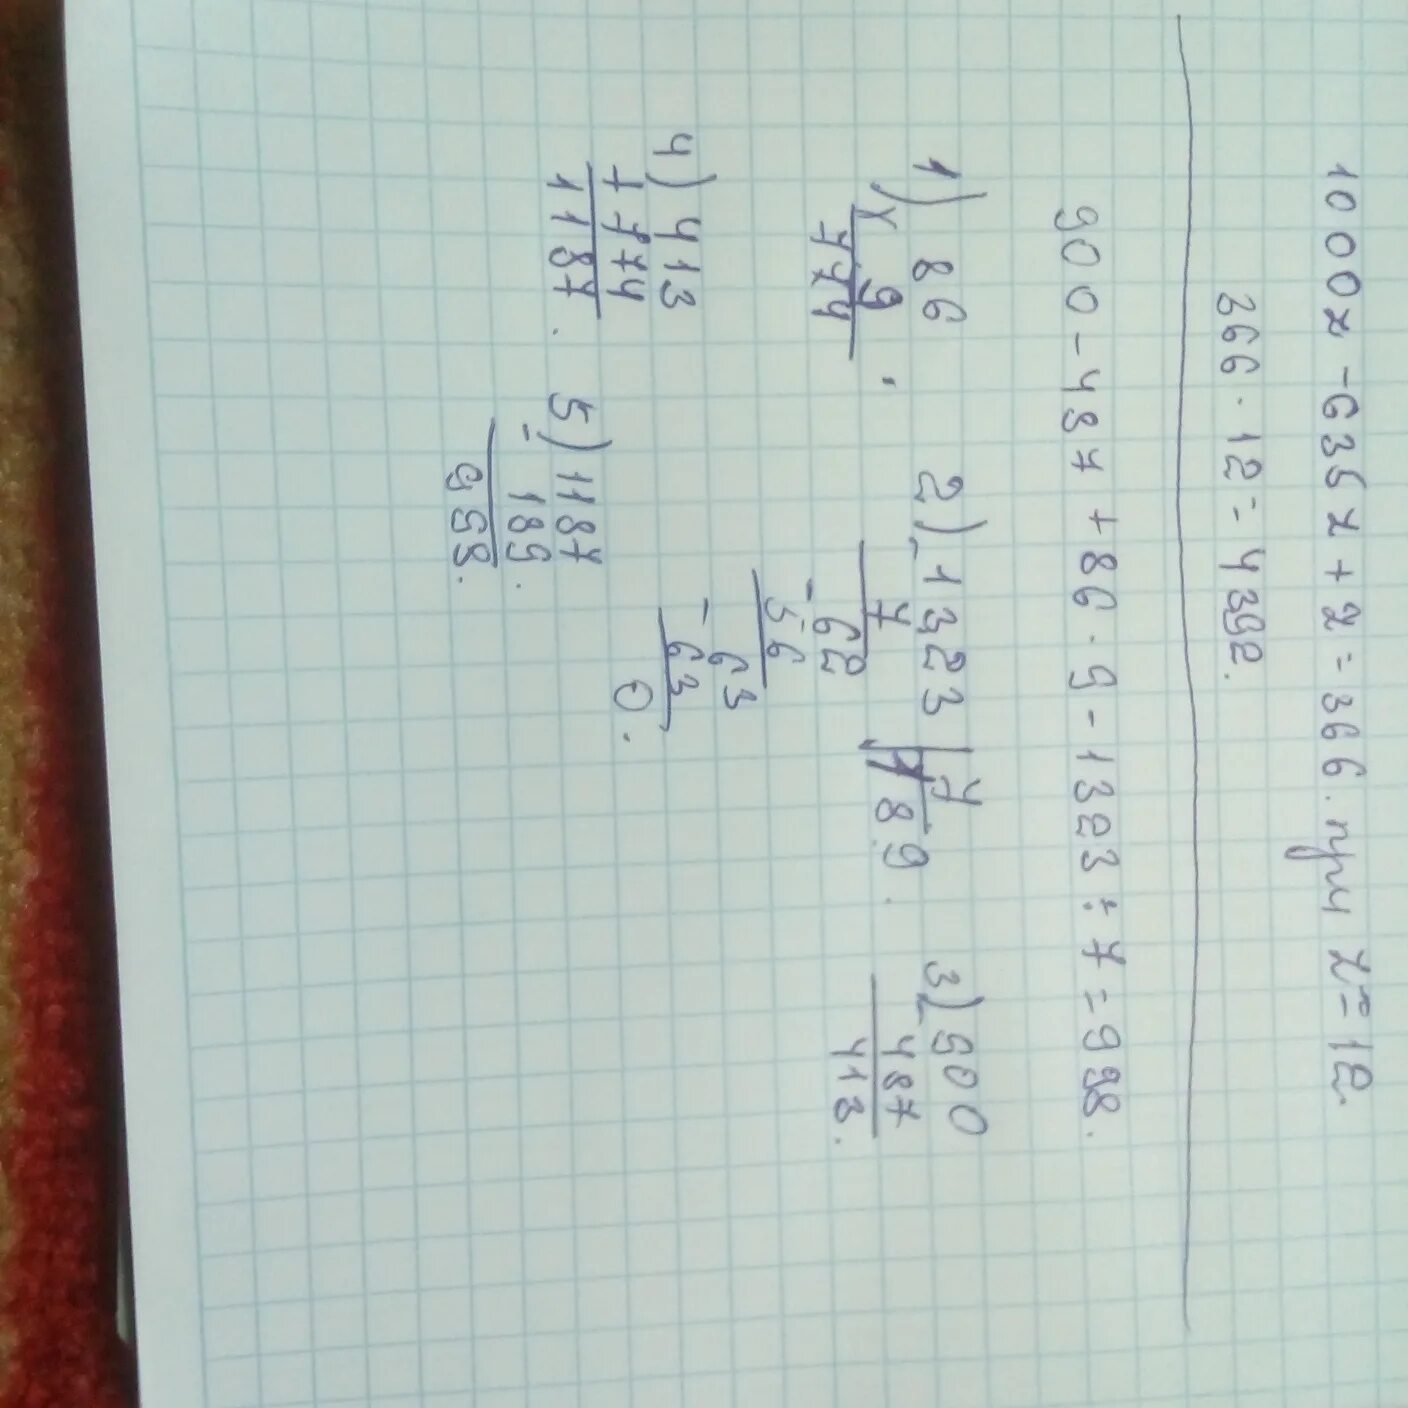 1000z - 635z + z = 366. при z = 12.
366 · 12 = 4392.
900 - 487 + 86 · 9 - 1323 : 7 = 998.
1) 86
х 9
774
.
2) - 1323 | 7
7 | 189.
62
- 56
63
- 63
0.
3) - 900
487
413.
4) 413
+ 774
1187.
5) 1187
- 189.
998.